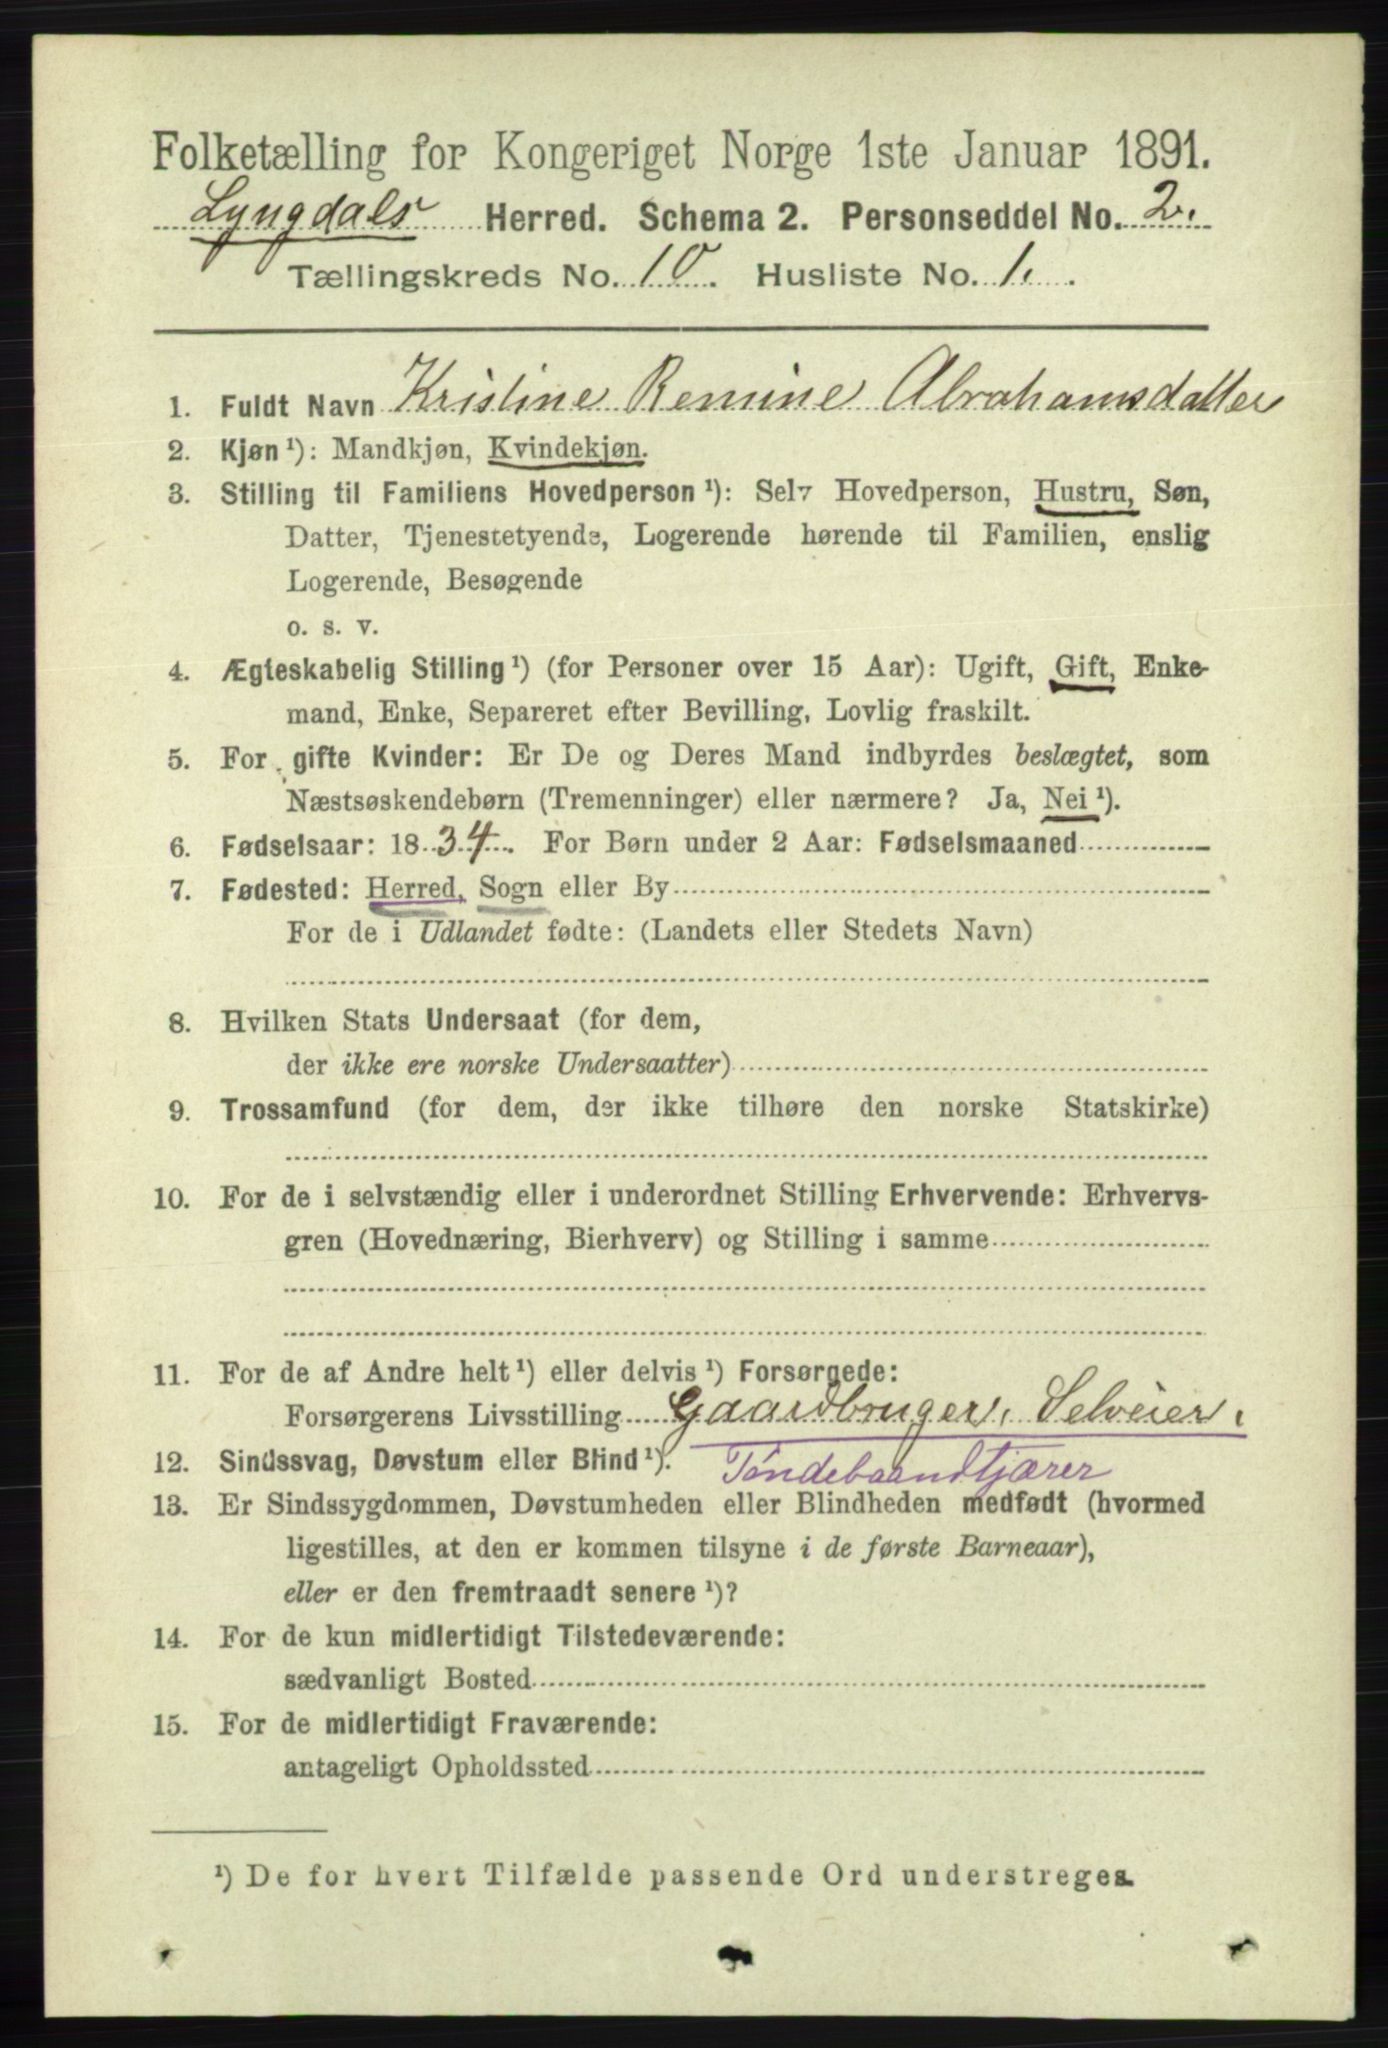 Folketælling for Kongeriget Norge 1ste Januar 1891.
Lyngdals Herred. Schema 2. Personseddel No. 2.
Tællingskreds No. 10. Husliste No. 1.
1. Fuldt Navn Kristine Remine Abrahamsdatter
2. Kjøn¹): Mandkjøn, Kvindekjøn.
3. Stilling til Familiens Hovedperson¹): Selv Hovedperson, Hustru, Søn,
Datter, Tjenestetyende, Logerende hørende til Familien, enslig
Logerende, Besøgende
o. s. v.
4. Ægteskabelig Stilling¹) (for Personer over 15 Aar): Ugift, Gift, Enke-
mand, Enke, Separeret efter Bevilling, Lovlig fraskilt.
5. For gifte Kvinder: Er De og Deres Mand indbyrdes beslægtet, som
Næstsøskendebørn (Tremenninger) eller nærmere? Ja, Nei¹).
6. Fødselsaar: 1834. For Børn under 2 Aar: Fødselsmaaned
7. Fødested: Herred, Sogn eller By
For de i Udlandet fødte: (Landets eller Stedets Navn)
8. Hvilken Stats Undersaat (for dem,
der ikke ere norske Undersaatter)
9. Trossamfund (for dem, der ikke tilhøre den norske Statskirke)
10. For de i selvstændig eller i underordnet Stilling Erhvervende: Erhvervs-
gren (Hovednæring, Bierhverv) og Stilling i samme
11. For de af Andre helt¹) eller delvis¹) Forsørgede:
Forsørgerens Livsstilling Gaardbruger, Selveier,
12. Sindssvag, Døvstum eller Blind¹). Töndebaandtjærer
13. Er Sindssygdommen, Døvstumheden eller Blindheden medfødt (hvormed
ligestilles, at den er kommen tilsyne i de første Barneaar),
eller er den fremtraadt senere¹)?
14. For de kun midlertidigt Tilstedeværende:
sædvanligt Bosted
15. For de midlertidigt Fraværende:
antageligt Opholdssted
¹) De for hvert Tilfælde passende Ord understreges.